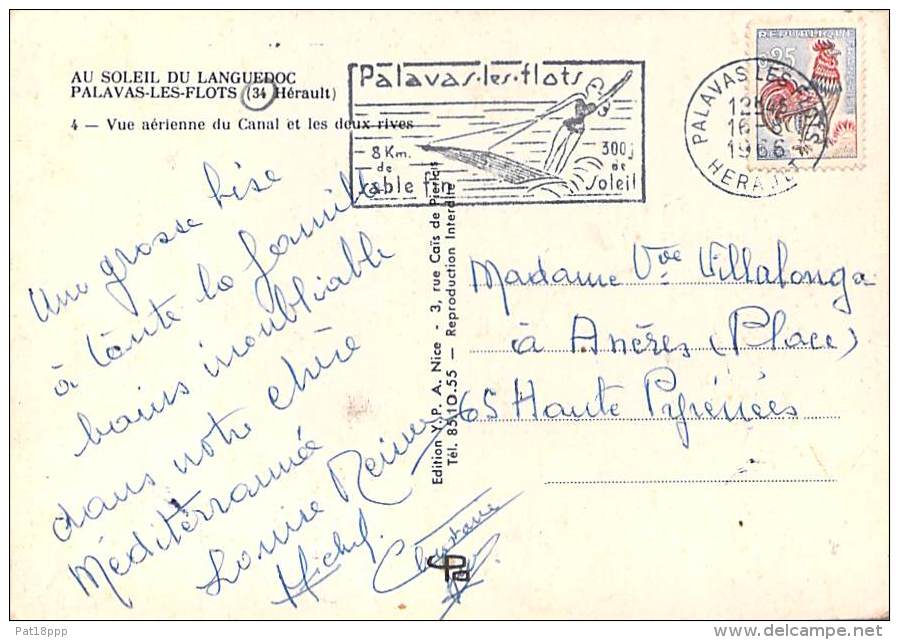 AU SOLEIL DU LANGUEDOC
PALAVAS-LES-FLOTS (34 Hérault)
4 — Vue aérienne du Canal et les deux rives
Palavas-les-flots
8 Km.
de
sable fin
300 j
de
Soleil
PALAVAS LES
12H45
16-
1966
HERAULT
REPUBLIQUE
0,25
Une grosse bise
à toute la famille
bains inoubliable
dans notre chère
Méditerrannée
Louise Reine
Michel
Edition Y. P. A. Nice - 3, rue Caïs de Pierlas
Tél. 85.10.55 — Reproduction Interdite
Madame Vve Villalonga
à Anères (Place)
65 Haute Pyrénées
Pat18ppp
www.delcampe.net